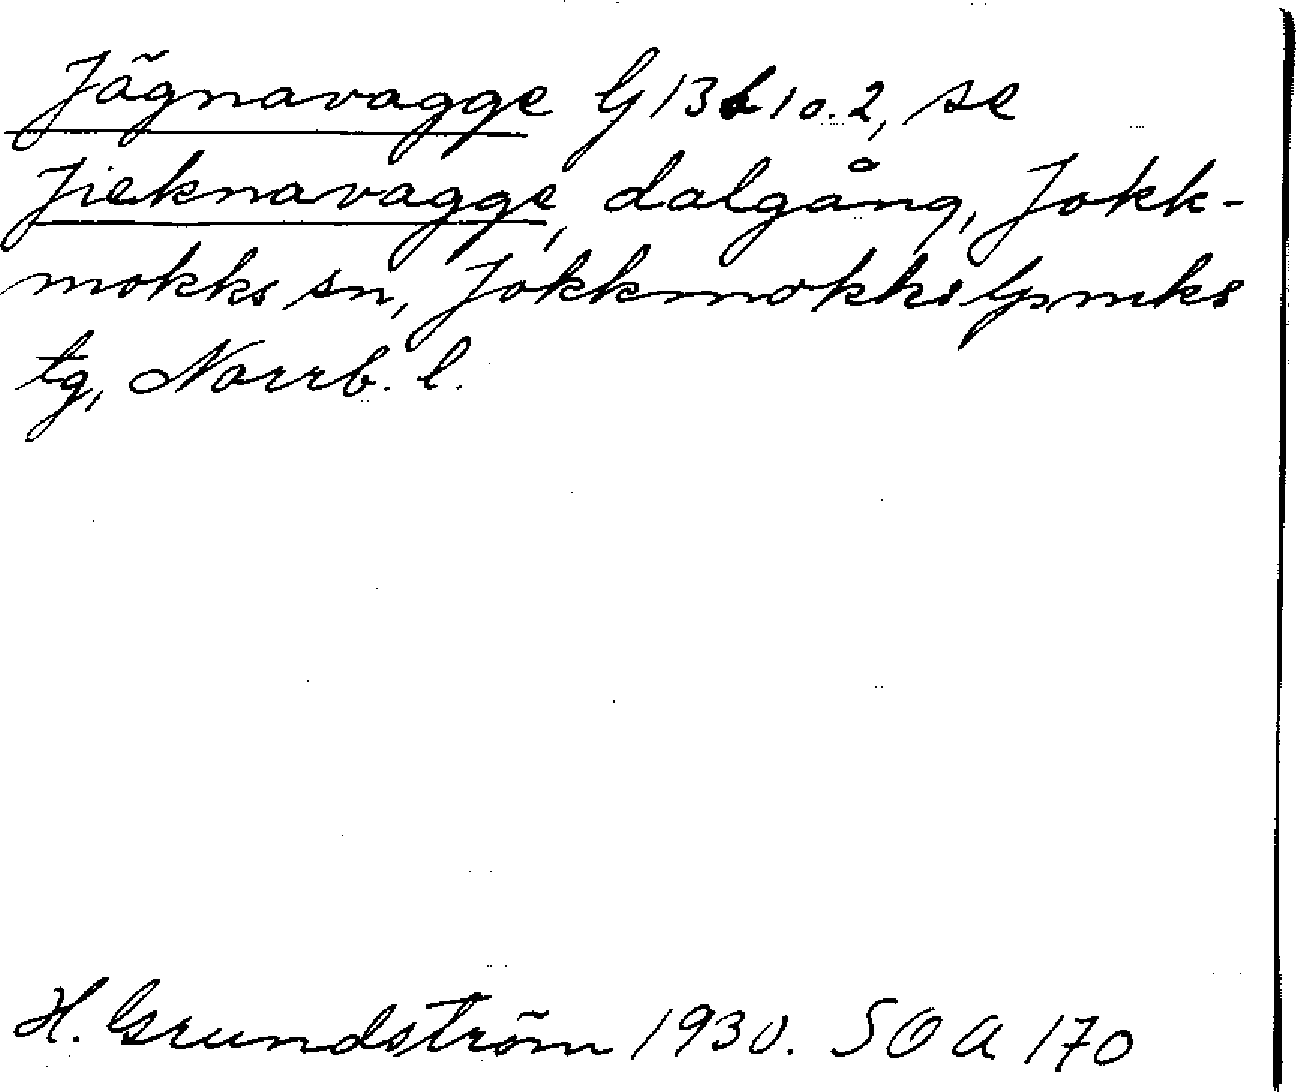 Jägnavagge G 13 b 10.2, se
Jieknavagge, dalgång, Jokk-
mokks sn, Jokkmokks lpmks
tg, Norrb. l.
H. Grundström 1930. SOA 170